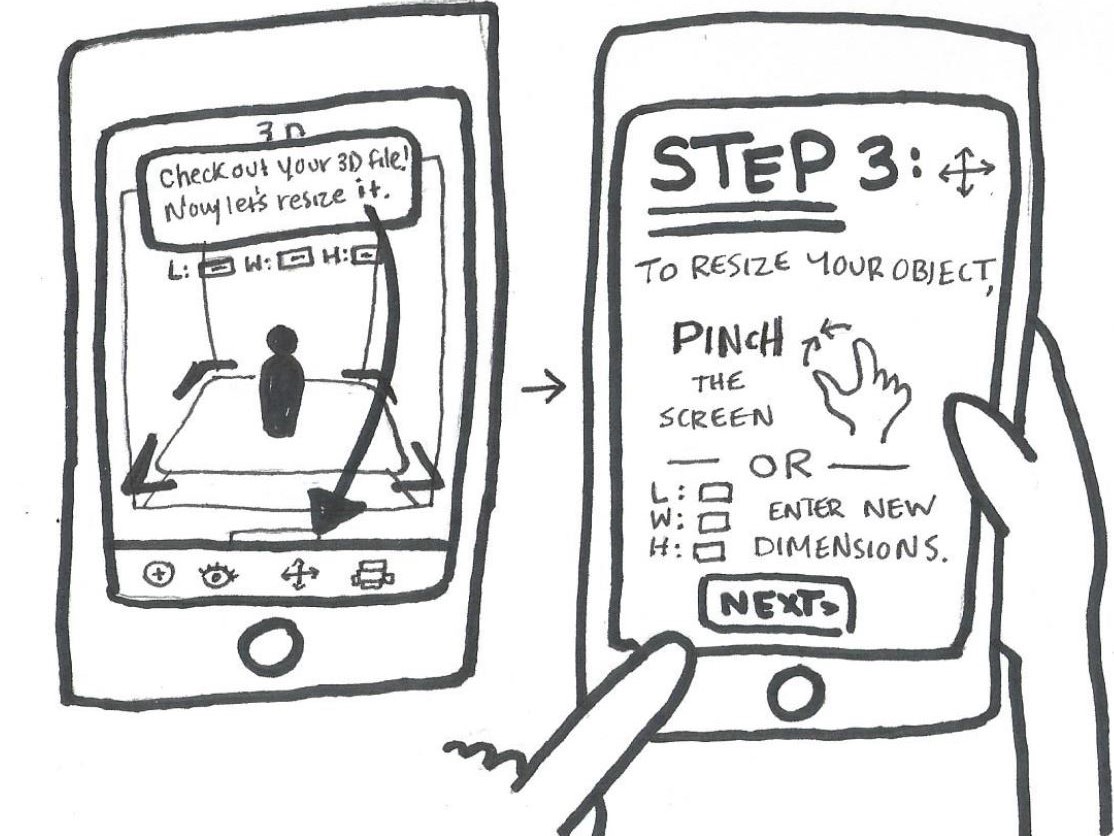 3D
Check out your 3D file!
Now let's resize it.
L: W: H:
STEP 3:
TO RESIZE YOUR OBJECT,
PINCH
THE
SCREEN
— OR —
L:
W: ENTER NEW
H: DIMENSIONS.
NEXT>